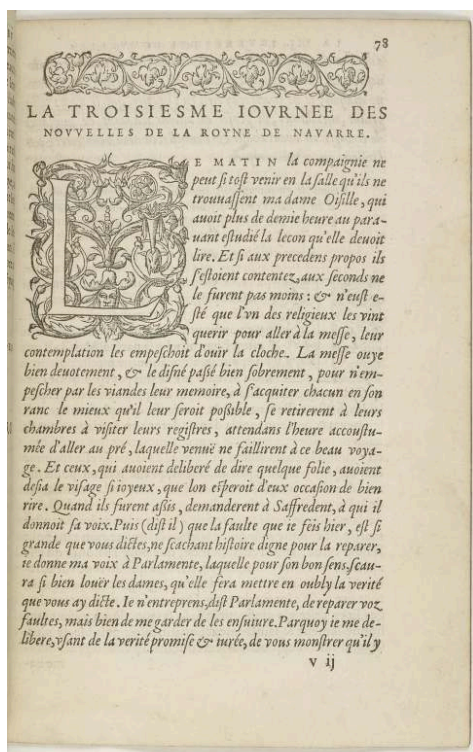 78
LA TROISIESME IOVRNEE DES
NOVVELLES DE LA ROYNE DE NAVARRE.
LE MATIN la compaignie ne
peut ſi toſt venir en la ſalle qu'ils ne
trouuaſſent ma dame Oiſille, qui
auoit plus de demie heure au para-
uant eſtudié la lecon qu'elle deuoit
lire. Et ſi aux precedens propos ils
s'eſtoient contentez, aux ſeconds ne
le furent pas moins: & n'euſt e-
ſté que l'vn des religieux les vint
querir pour aller à la meſſe, leur
contemplation les empeſchoit d'ouïr la cloche. La meſſe ouye
bien deuotement, & le diſné paſſé bien ſobrement, pour n'em-
peſcher par les viandes leur memoire, à s'acquiter chacun en ſon
ranc le mieux qu'il leur ſeroit poßible, ſe retirerent à leurs
chambres à viſiter leurs regiſtres, attendans l'heure accouſtu-
mée d'aller au pré, laquelle venuë ne faillirent à ce beau voya-
ge. Et ceux, qui auoient deliberé de dire quelque folie, auoient
deſia le viſage ſi ioyeux, que lon eſperoit d'eux occaſion de bien
rire. Quand ils furent aßis, demanderent à Saffredent, à qui il
donnoit ſa voix. Puis (diſt il) que la faulte que ie feis hier, eſt ſi
grande que vous dictes, ne ſcachant hiſtoire digne pour la reparer,
ie donne ma voix à Parlamente, laquelle pour ſon bon ſens, ſcau-
ra ſi bien louër les dames, qu'elle fera mettre en oubly la verité
que vous ay dicte. Ie n'entreprens, diſt Parlamente, de reparer voz
faultes, mais bien de me garder de les enſuiure. Parquoy ie me de-
libere, vſant de la verité promiſe & iurée, de vous monſtrer qu'il y
v ij